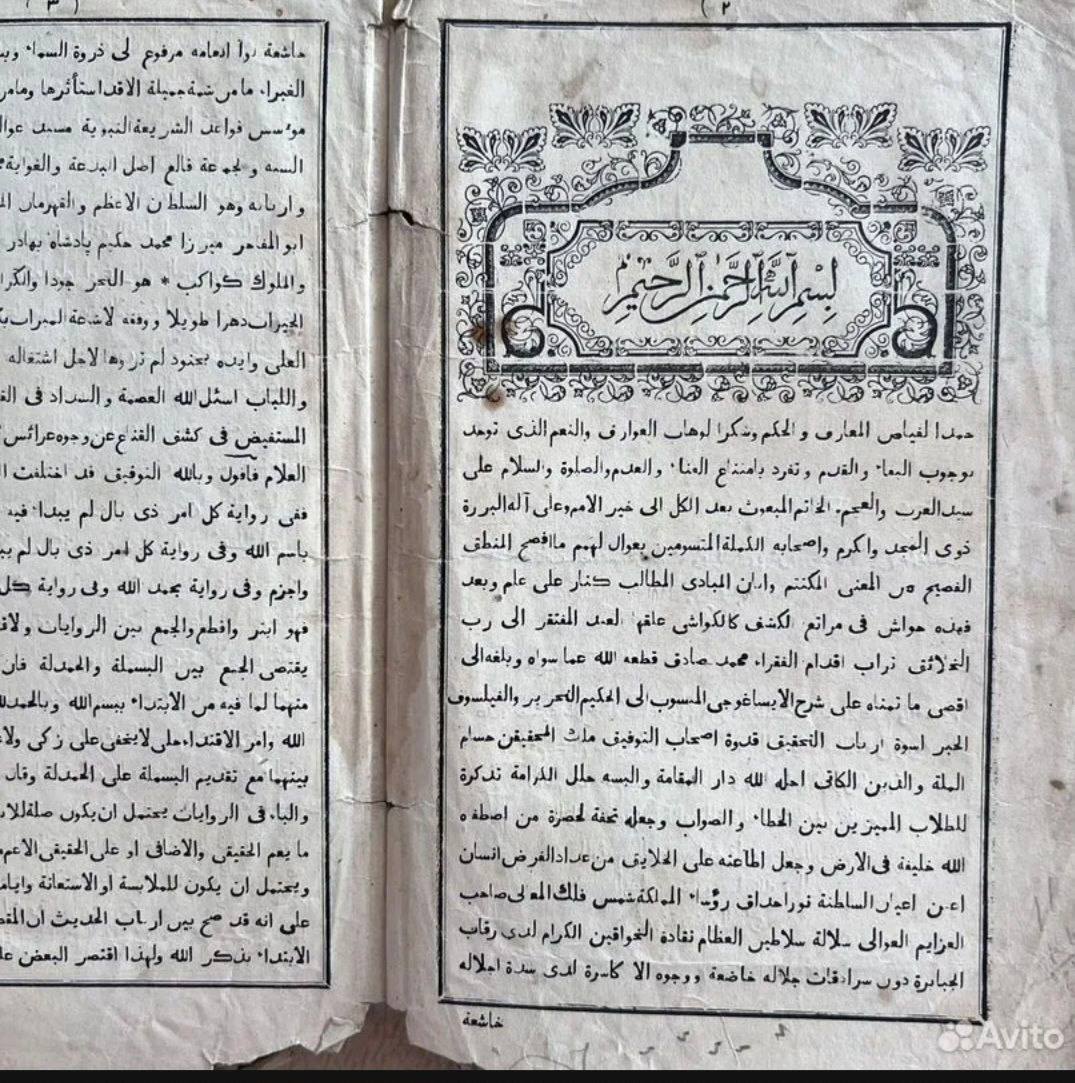 ( ٢ )
بسم الله الرحمن الرحيم
حمدا لفياض المعارف والحكم وشكرا لوهاب العوارف والنعم الذى توحد
بوجوب البقاء والقدم وتفرد بامتناع الفناء والعدم والصلوة والسلام على
سيد العرب والعجم الخاتم المبعوث بعد الكل الى خير الامم وعلى آله البررة
ذوى المجد والكرم واصحابه الكملة المتسومين بعوال لهمم ما افصح المنطق
الفصيح من المعنى المكتتم وابان المبادى المطالب كنار على علم وبعد
فهذه حواش فى مراتع الكشف كالكواشى علقها العبد المفتقر الى رب
الخلائق تراب اقدام الفقراء محمد صادق قطعه الله عما سواه وبلغه الى
اقصى ما تمناه على شرح الايساغوجى المنسوب الى الحكيم النحرير والفيلسوف
الحبر اسوة ارباب التحقيق قدوة اصحاب التوفيق ملك المحققين حسام
الملة والدين الكاتى احله الله دار المقامة والبسه حلل الكرامة تذكرة
للطلاب المميزين بين الخطاء والصواب وجعله تحفة لحضرة من اصطفه
الله خليفة فى الارض وجعل اطاعته على الخلايق من عداد الفرض انسان
اعين اعيان السلطنة نور احداق رؤساء المملكة شمس فلك المعالى صاحب
العزايم العوالى سلالة سلاطين العظام نقادة الخواقين الكرام لدى رقاب
الجبابرة دون سرادقات جلاله خاضعة ووجوه الاكاسرة لدى سدة اجلاله
خاشعة
( ٣ )
خاشعة لواء انعامه مرفوع الى ذروة السماء
الغبراء ما من شمة جميلة الاقد استأثرها وما من
موسس قواعد الشريعة النبوية مشيد
السنة والجماعة قالع اصل البدعة والغواية
واربابه وهو السلطان الاعظم والقهرمان
ابو المفاخر ميرزا محمد حكيم پادشاه بهادر
والملوك كواكب * هو البحر جودا
الخيرات دهرا طويلا ووفقه لاشاعة المبرات
العلى وايده بجنود لم تروها لاجل اشتغاله
واللباب اسئل الله العصمة والسداد فى
المستفيض فى كشف القناع عن وجوه عرائس
العلام فاقول وبالله التوفيق قد اختلفت
ففى رواية كل امر ذى بال لم يبداء فيه
باسم الله وفى رواية كل امر ذى بال لم
واجزم وفى رواية بحمد الله وفى رواية كل
فهو ابتر واقطع والجمع بين الروايات
يقتضى الجمع بين البسملة والحمدلة فان
منهما لما فيه من الابتداء ببسم الله وبالحمدلله
الله وامر الاقتداء جلى لا يخفى على زكى
بينهما مع تقديم البسملة على الحمدلة وقال
والباء فى الروايات يحتمل ان يكون صلة
ما يعم الحقيقى والاضافى او على الحقيقى الاعم
ويحتمل ان يكون للملابسة او الاستعانة
على انه قد صح بين ارباب الحديث ان
الابتداء بذكر الله ولهذا اقتصر البعض
Avito